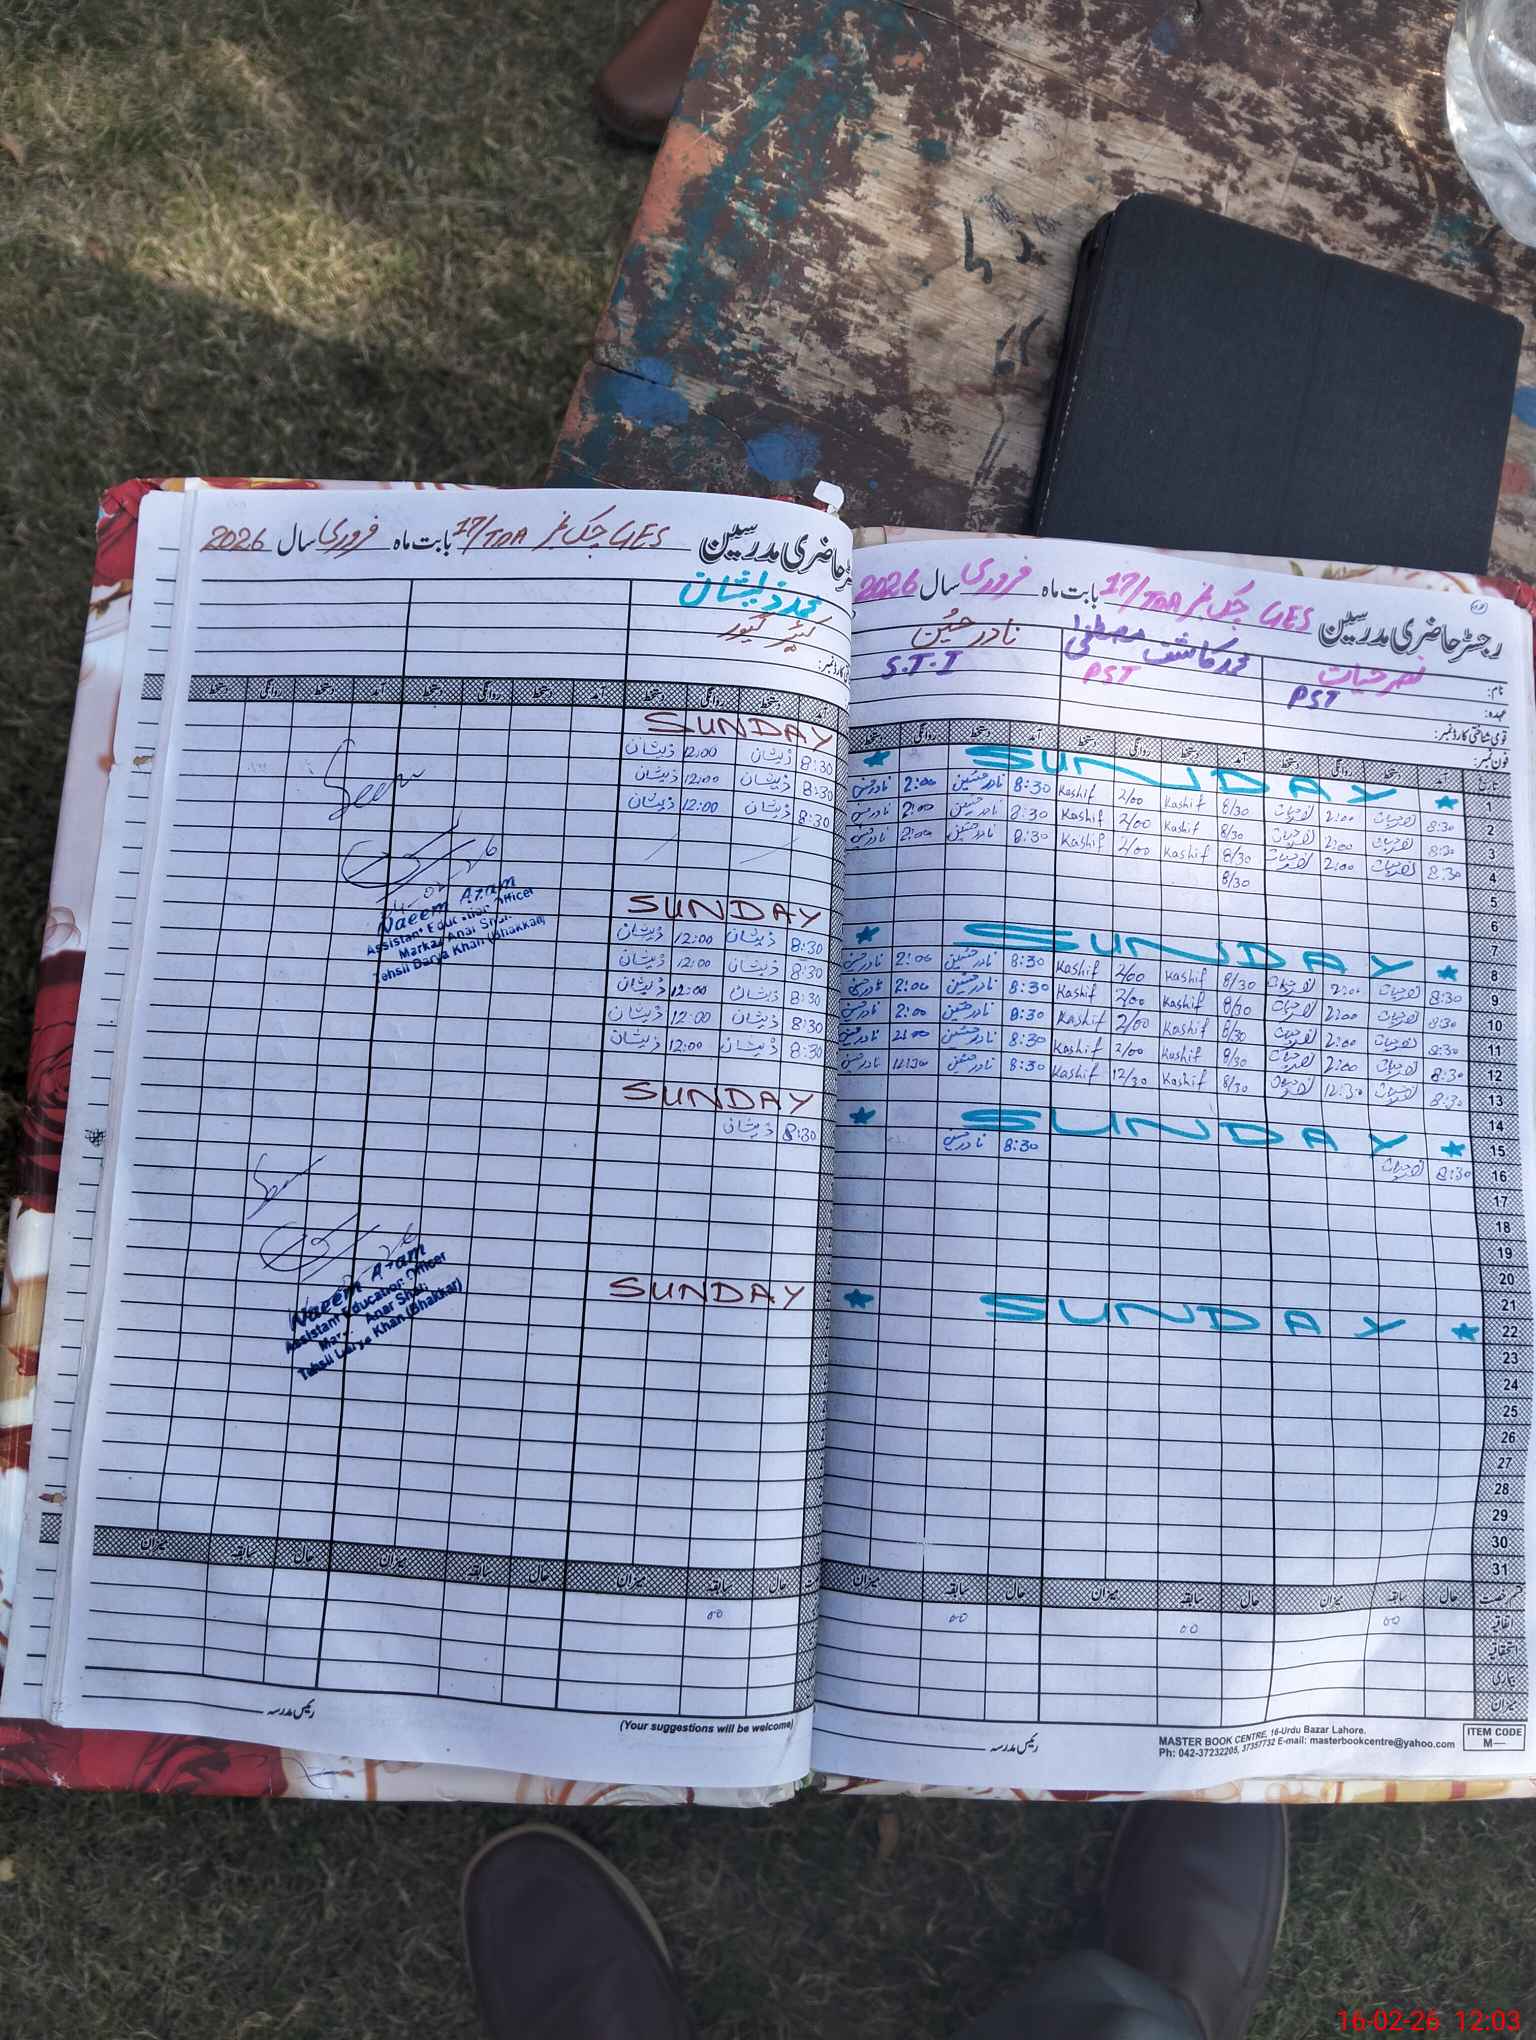 رجسٹر حاضری مدرسین GES چک نمبر 17/TDA بابت ماہ فروری سال 2026
نام: نصر حیات محمد کاشف مصطفیٰ نادر حسین
عہدہ: PST PST S.T.I
قومی شناختی کارڈ نمبر:
فون نمبر:
تاریخ آمد دستخط روانگی دستخط آمد دستخط روانگی دستخط آمد دستخط روانگی دستخط
1 SUNDAY
2 8:30 نصر حیات 2:00 نصر حیات 8/30 Kashif 2/00 Kashif 8:30 نادر حسین 2:00 نادر حسین
3 8:30 نصر حیات 2:00 نصر حیات 8/30 Kashif 2/00 Kashif 8:30 نادر حسین 2:00 نادر حسین
4 8:30 نصر حیات 2:00 نصر حیات 8/30 Kashif 2/00 Kashif 8:30 نادر حسین 2:00 نادر حسین
5 8/30
6
7
8 SUNDAY
9 8:30 نصر حیات 2:00 نصر حیات 8/30 Kashif 2/00 Kashif 8:30 نادر حسین 2:00 نادر حسین
10 8:30 نصر حیات 2:00 نصر حیات 8/30 Kashif 2/00 Kashif 8:30 نادر حسین 2:00 نادر حسین
11 8:30 نصر حیات 2:00 نصر حیات 8/30 Kashif 2/00 Kashif 8:30 نادر حسین 2:00 نادر حسین
12 8:30 نصر حیات 2:00 نصر حیات 8/30 Kashif 2/00 Kashif 8:30 نادر حسین 2:00 نادر حسین
13 8:30 نصر حیات 12:30 نصر حیات 8/30 Kashif 12/30 Kashif 8:30 نادر حسین 12:30 نادر حسین
14
15 SUNDAY
16 8:30 نصر حیات 8:30 نادر حسین
17
18
19
20
21
22 SUNDAY
23
24
25
26
27
28
29
30
31
حال سابقہ میزان حال سابقہ میزان حال سابقہ میزان
اتفاقیہ 00 00 00
استحقاقیہ
بیماری
میزان
رئیس مدرسہ
MASTER BOOK CENTRE, 16-Urdu Bazar Lahore.
Ph: 042-37232205, 37357732 E-mail: masterbookcentre@yahoo.com
ITEM CODE
M—
رجسٹر حاضری مدرسین GES چک نمبر 17/TDA بابت ماہ فروری سال 2026
محمد ذیشان
کارڈ نمبر:
آمد دستخط روانگی دستخط آمد دستخط روانگی دستخط آمد دستخط روانگی دستخط
SUNDAY
8:30 ذیشان 12:00 ذیشان
8:30 ذیشان 12:00 ذیشان
8:30 ذیشان 12:00 ذیشان
SUNDAY
8:30 ذیشان 12:00 ذیشان
8:30 ذیشان 12:00 ذیشان
8:30 ذیشان 12:00 ذیشان
8:30 ذیشان 12:00 ذیشان
8:30 ذیشان 12:00 ذیشان
SUNDAY
8:30 ذیشان
SUNDAY
Seen
Naeem Azam
Assistant Education Officer
Markaz Anar Shali
Tehsil Darya Khan (Bhakkar)
Seen
Naeem Azam
Assistant Education Officer
Markaz Anar Shali
Tehsil Darya Khan (Bhakkar)
حال سابقہ میزان حال سابقہ میزان حال سابقہ میزان
00
رئیس مدرسہ
(Your suggestions will be welcome)
16-02-26 12:03